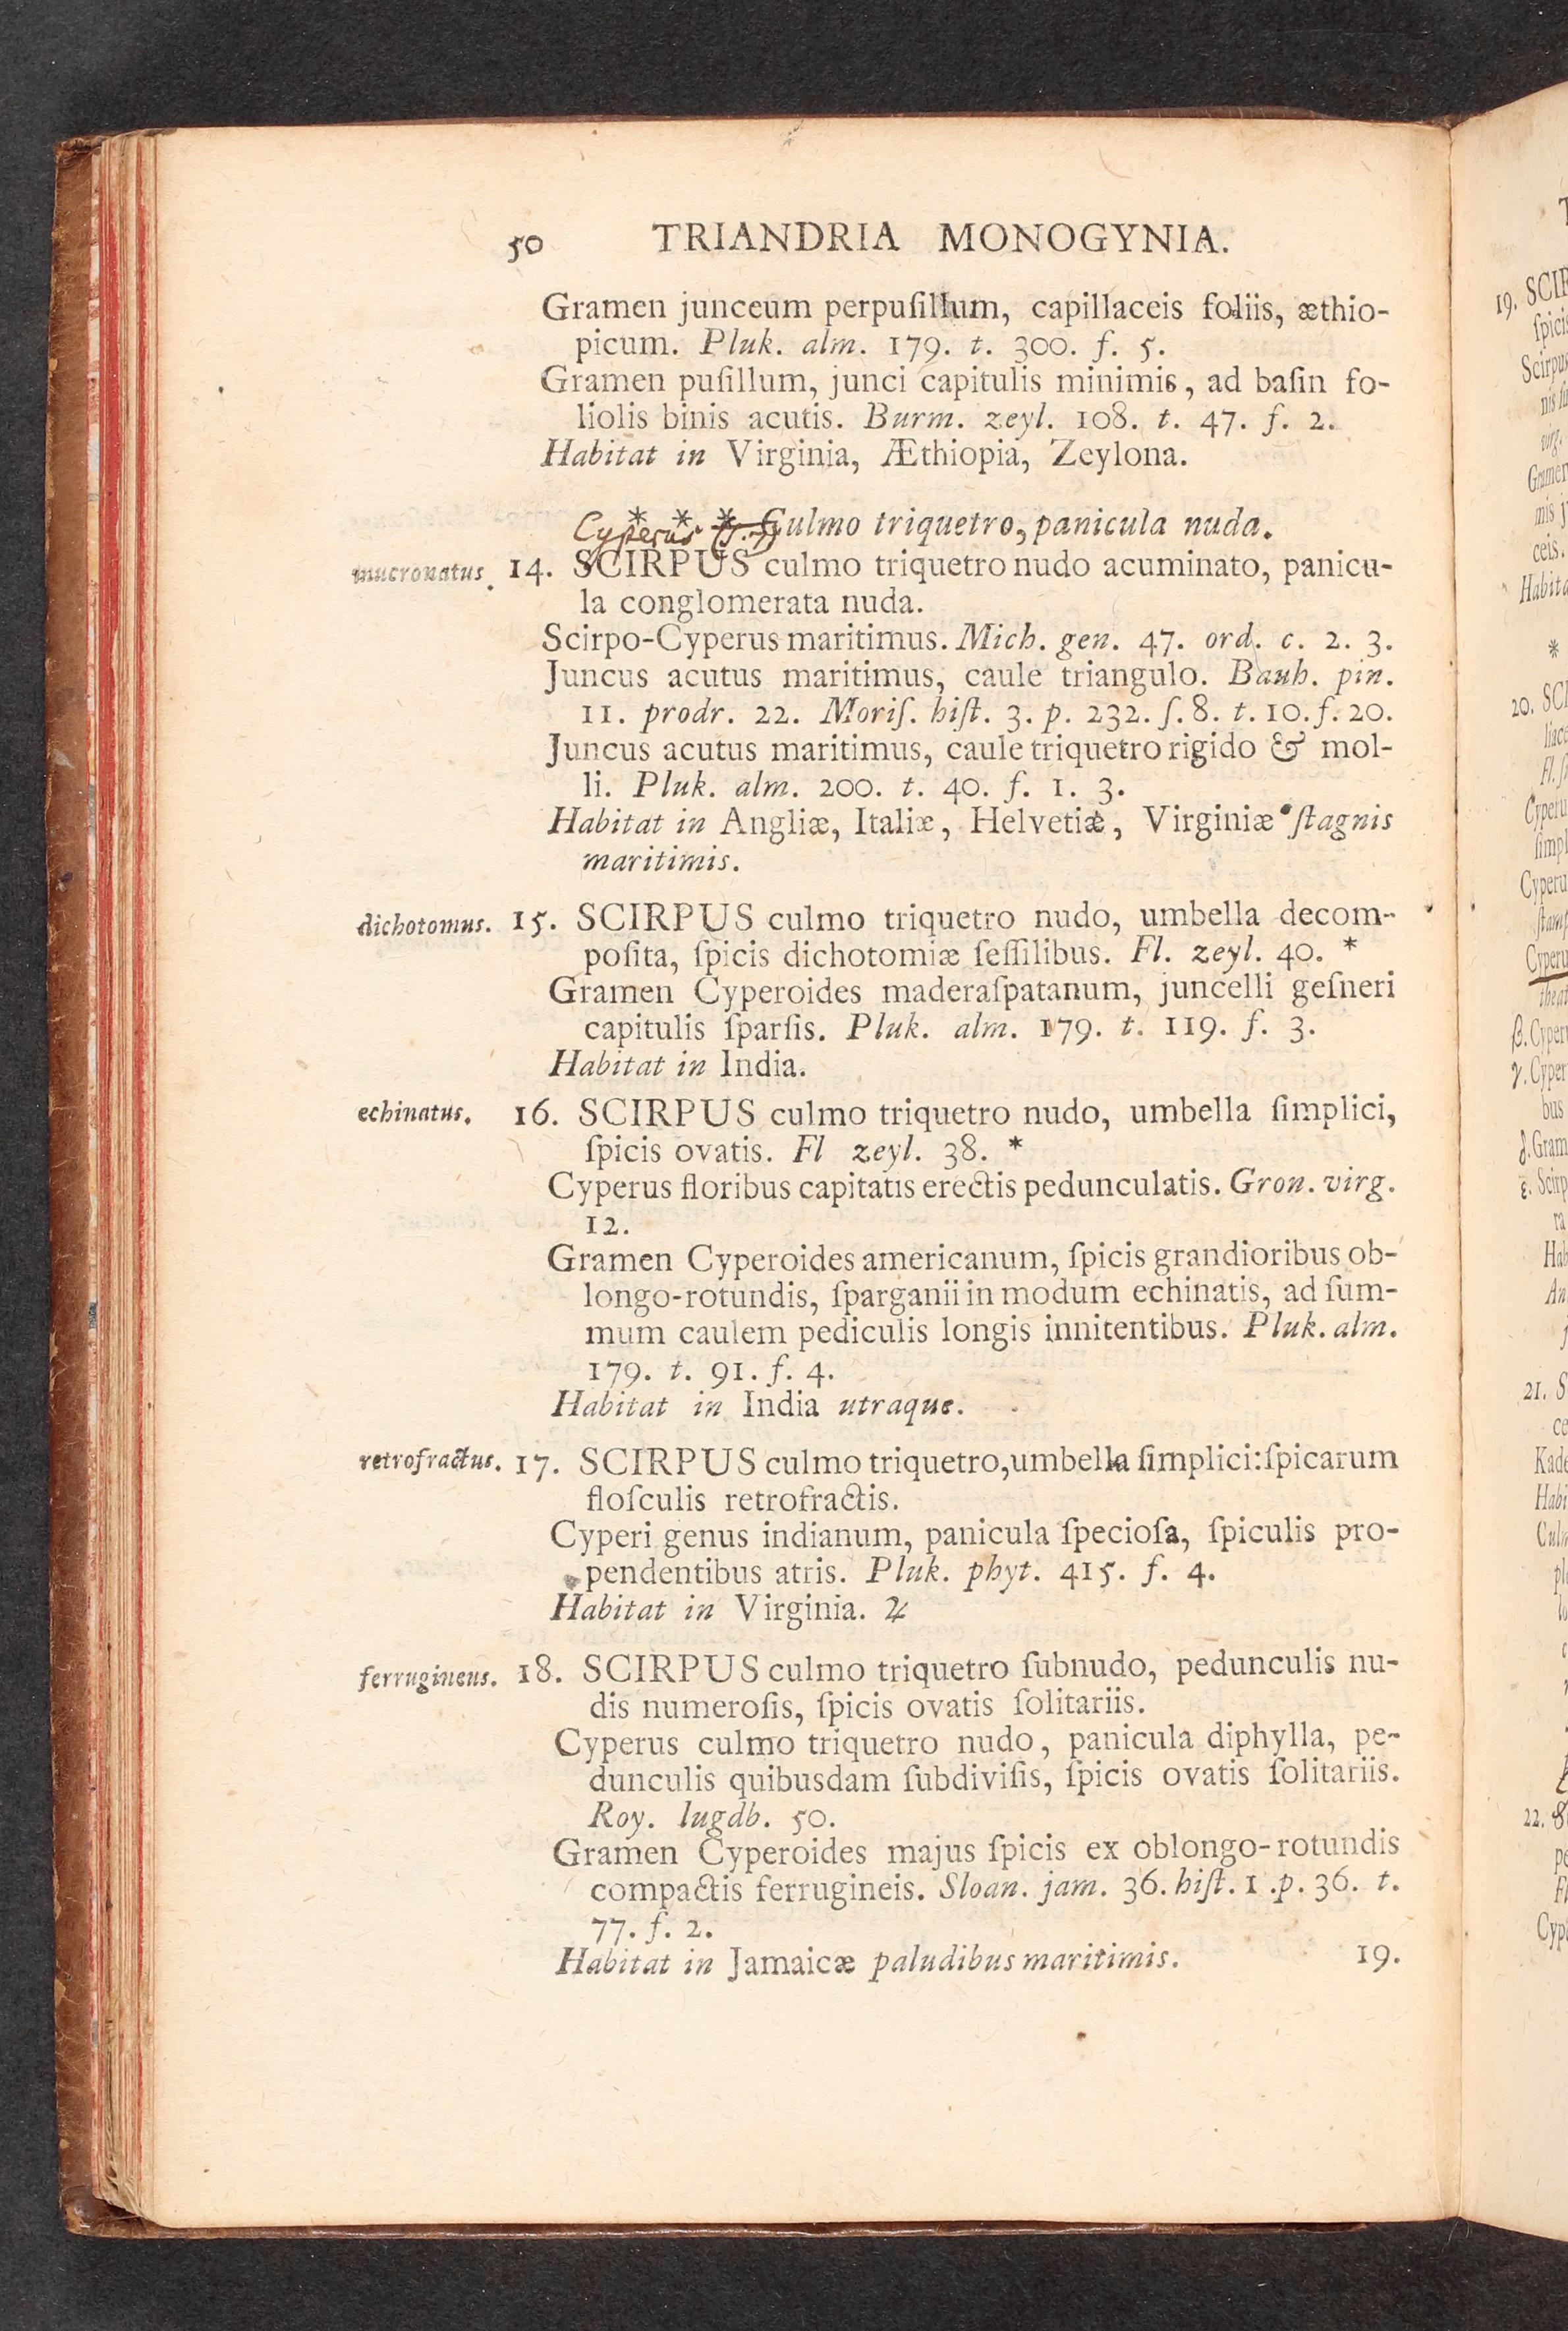 50 TRIANDRIA MONOGYNIA.
Gramen junceum perpuſillum, capillaceis foliis, æthio-
picum. Pluk. alm. 179. t. 300. f. 5.
Gramen puſillum, junci capitulis minimis, ad baſin fo-
liolis binis acutis. Burm. zeyl. 108. t. 47. f. 2.
Habitat in Virginia, Æthiopia, Zeylona.
* * * Culmo triquetro, panicula nuda.
Cyperus
mucronatus. 14. SCIRPUS culmo triquetro nudo acuminato, panicu-
la conglomerata nuda.
Scirpo-Cyperus maritimus. Mich. gen. 47. ord. c. 2. 3.
Juncus acutus maritimus, caule triangulo. Bauh. pin.
11. prodr. 22. Moriſ. hiſt. 3. p. 232. ſ. 8. t. 10. f. 20.
Juncus acutus maritimus, caule triquetro rigido & mol-
li. Pluk. alm. 200. t. 40. f. 1. 3.
Habitat in Angliæ, Italiæ, Helvetiæ, Virginiæ ſtagnis
maritimis.
dichotomus. 15. SCIRPUS culmo triquetro nudo, umbella decom-
poſita, ſpicis dichotomiæ ſeſſilibus. Fl. zeyl. 40. *
Gramen Cyperoides maderaſpatanum, juncelli geſneri
capitulis ſparſis. Pluk. alm. 179. t. 119. f. 3.
Habitat in India.
echinatus. 16. SCIRPUS culmo triquetro nudo, umbella ſimplici,
ſpicis ovatis. Fl zeyl. 38. *
Cyperus floribus capitatis erectis pedunculatis. Gron. virg.
12.
Gramen Cyperoides americanum, ſpicis grandioribus ob-
longo-rotundis, ſparganii in modum echinatis, ad ſum-
mum caulem pediculis longis innitentibus. Pluk. alm.
179. t. 91. f. 4.
Habitat in India utraque.
retrofractus. 17. SCIRPUS culmo triquetro, umbella ſimplici: ſpicarum
floſculis retrofractis.
Cyperi genus indianum, panicula ſpecioſa, ſpiculis pro-
pendentibus atris. Pluk. phyt. 415. f. 4.
Habitat in Virginia. ♃
ferrugineus. 18. SCIRPUS culmo triquetro ſubnudo, pedunculis nu-
dis numeroſis, ſpicis ovatis ſolitariis.
Cyperus culmo triquetro nudo, panicula diphylla, pe-
dunculis quibusdam ſubdiviſis, ſpicis ovatis ſolitariis.
Roy. lugdb. 50.
Gramen Cyperoides majus ſpicis ex oblongo-rotundis
compactis ferrugineis. Sloan. jam. 36. hiſt. 1. p. 36. t.
77. f. 2.
Habitat in Jamaicæ paludibus maritimis. 19.